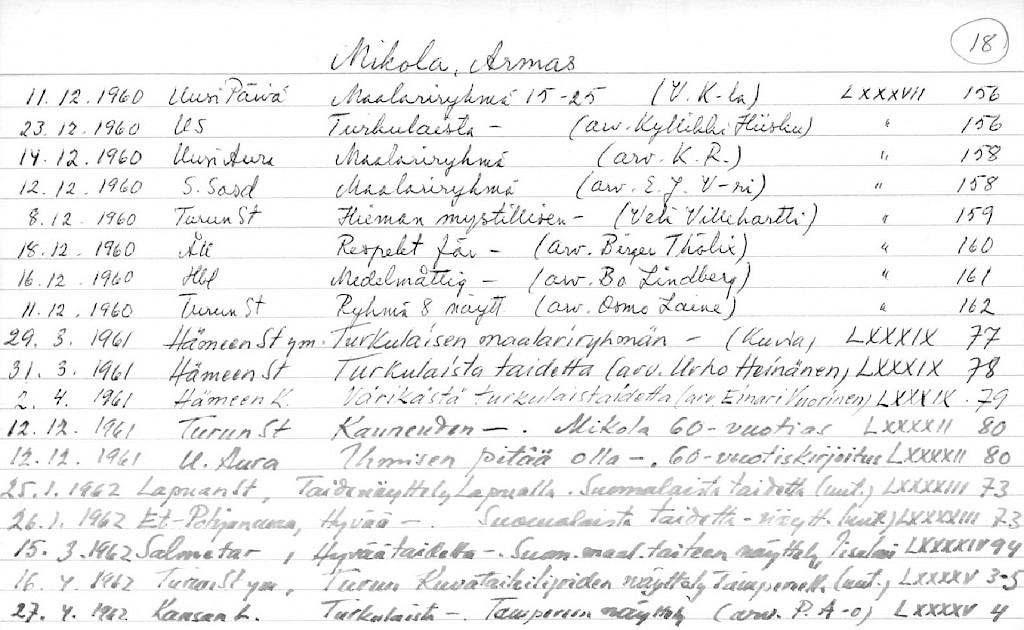 18
Mikola, Armas
11.12.1960 Uusi Päivä Maalariryhmä 15-25 (V. K-la) LXXXVII 156
23.12.1960 US Turkulaista - (arv. Kyllikki Hiisku) " 156
14.12.1960 Uusi Aura Maalariryhmä (arv. K.R.) " 158
12.12.1960 S. Sosd Maalariryhmä (arv. E.J. V-ri) " 158
8.12.1960 Turun St Hieman mystillisen - (Veli Villehartti) " 159
18.12.1960 ÅU Respekt för - (arv. Birger Thölix) " 160
16.12.1960 Hbl Medelmåttig - (arv. Bo Lindberg) " 161
11.12.1960 Turun St Ryhmä 8 näytt. (arv. Osmo Laine) " 162
29.3.1961 Hämeen St ym. Turkulaisen maalariryhmän - (Kuvia) LXXXIX 77
31.3.1961 Hämeen St Turkulaista taidetta (arv. Urho Heinänen) LXXXIX 78
2.4.1961 Hämeen K. Värikästä turkulaistaidetta (arv. Einari Vuorinen) LXXXIX. 79
12.12.1961 Turun St Kauneuden -. Mikola 60-vuotias LXXXXII 80
12.12.1961 U. Aura Ihmisen pitää olla -. 60-vuotiskirjoitus LXXXXII 80
25.1.1962 Lapuan St, Taidenäyttely Lapualla. Suomalaista taidetta (uut.) LXXXXIII 73
26.1.1962 Et-Pohjanmaa, Hyvää -. Suomalaista taidetta-näytt. (uut.) LXXXXIII 73
15.3.1962 Salmetar, Hyvää taidetta -. Suom. maal. taiteen näyttely Iisalmi LXXXXIV 94
16.4.1962 Turun St ym, Turun Kuvataiteilijoiden näyttely Tampereella (uut.) LXXXXV 3-5
27.4.1962 Kansan L. Turkulaista - Tampereen näyttely (arv. P. A-o) LXXXXV 4